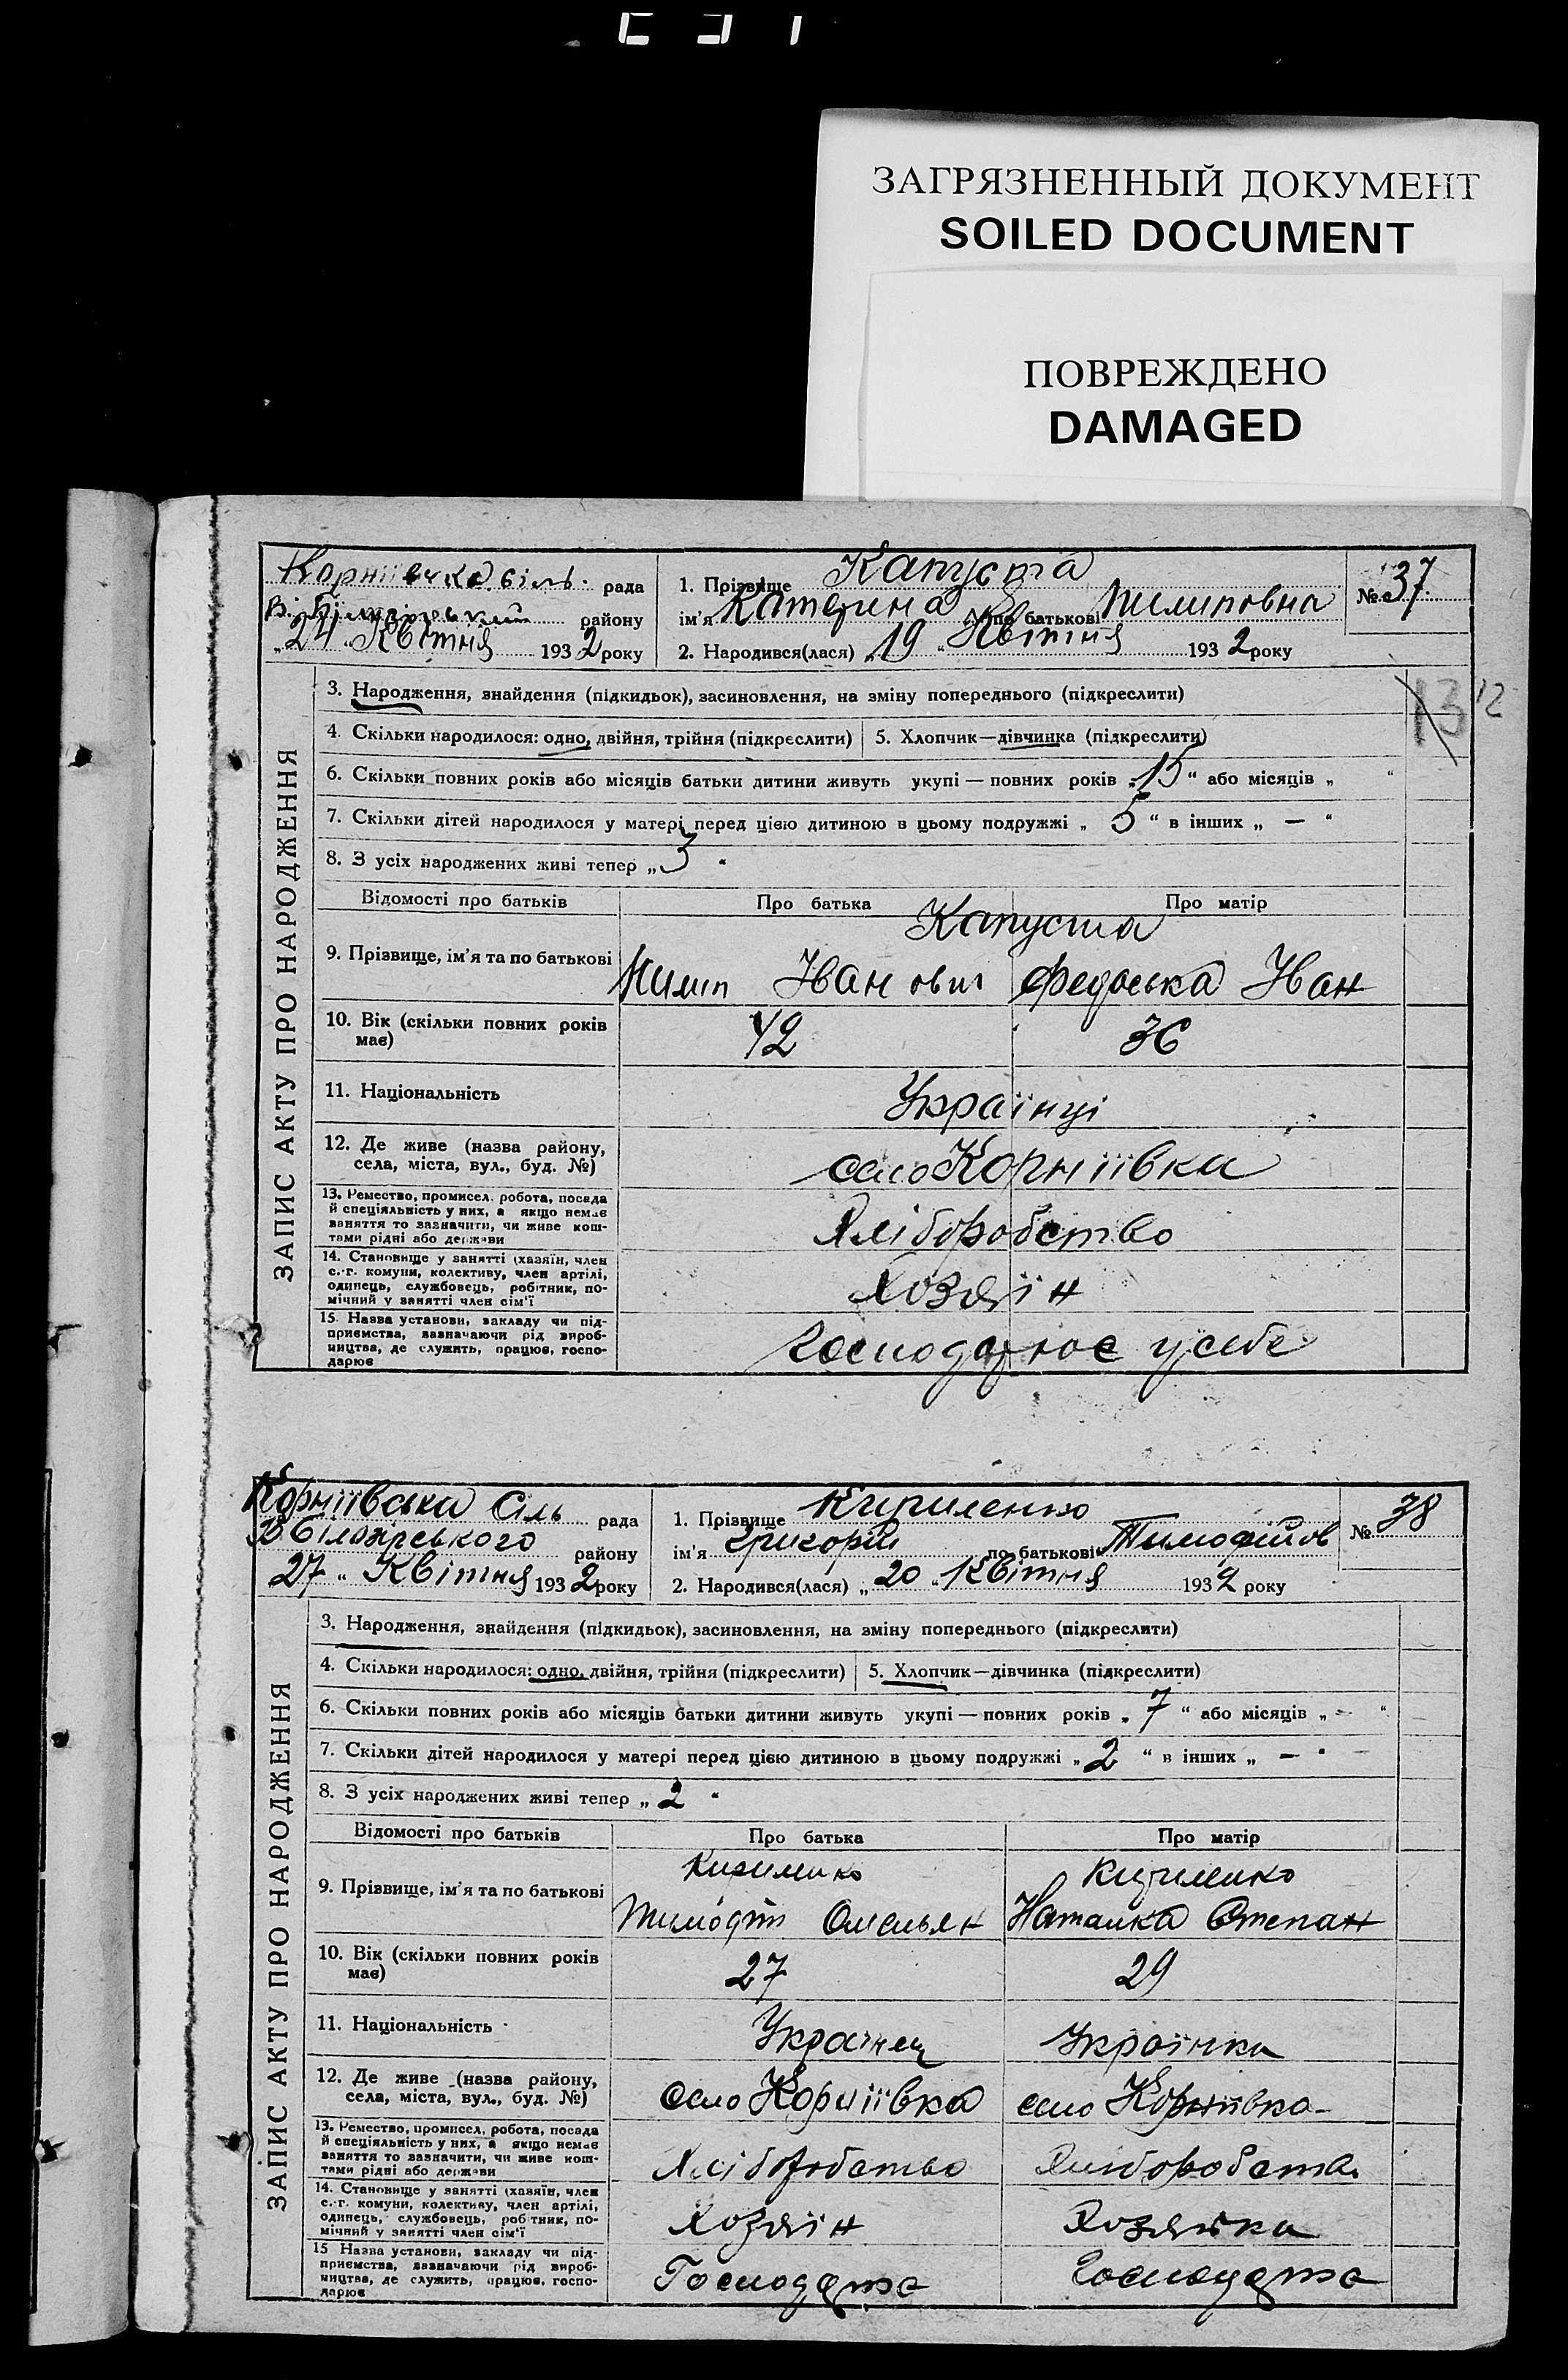 ЗАГРЯЗНЕННЫЙ ДОКУМЕНТ
SOILED DOCUMENT
ПОВРЕЖДЕНО
DAMAGED
Корніївська сіль. рада
району
„24“ Квітня 1932 року
1. Прізвище Капуста
ім'я Катерина по батькові Пилиповна
2. Народився(лася) „19“ Квітня 1932 року
№ 37
ЗАПИС АКТУ ПРО НАРОДЖЕННЯ
3. Народження, знайдення (підкидьок), засиновлення, на зміну попереднього (підкреслити)
13 12
4. Скільки народилося: одно, двійня, трійня (підкреслити) 5. Хлопчик—дівчинка (підкреслити)
6. Скільки повних років або місяців батьки дитини живуть укупі — повних років „15“ або місяців „ “
7. Скільки дітей народилося у матері перед цією дитиною в цьому подружжі „ 5 “ в інших „ — “
8. З усіх народжених живі тепер „3“
Відомості про батьків Про батька Про матір
Капуста
9. Прізвище, ім'я та по батькові Пилип Іванович Федоська Іван
10. Вік (скільки повних років має) 42 36
11. Національність Українці
12. Де живе (назва району, села, міста, вул., буд. №) село Корніївка
13. Ремество, промисел, робота, посада й спеціяльність у них, а якщо немає заняття то зазначити, чи живе коштами рідні або держави Хліборобство
14. Становище у занятті (хазяїн, член с.-г. комуни, колективу, член артілі, одинець, службовець, робітник, помічний у занятті член сім'ї Хозяїн
15. Назва установи, закладу чи підприємства, зазначаючи рід виробництва, де служить, працює, господарює Господарює у себе
Корніївська Сіль рада
району
27 „ Квітня 1932 року
1. Прізвище Кириленко
ім'я Григорій по батькові Тимофійов
2. Народився(лася) „20“ Квітня 1932 року
№ 38
ЗАПИС АКТУ ПРО НАРОДЖЕННЯ
3. Народження, знайдення (підкидьок), засиновлення, на зміну попереднього (підкреслити)
4. Скільки народилося: одно, двійня, трійня (підкреслити) 5. Хлопчик—дівчинка (підкреслити)
6. Скільки повних років або місяців батьки дитини живуть укупі — повних років „ 7 “ або місяців „ — “
7. Скільки дітей народилося у матері перед цією дитиною в цьому подружжі „ 2 “ в інших „ — “
8. З усіх народжених живі тепер „ 2 “
Відомості про батьків Про батька Про матір
Кириленко Кириленко
9. Прізвище, ім'я та по батькові Тимофій Омельян Наталка Степан
10. Вік (скільки повних років має) 27 29
11. Національність Українец Українка
12. Де живе (назва району, села, міста, вул., буд. №) село Корніївка село Корніївка
13. Ремество, промисел, робота, посада й спеціяльність у них, а якщо немає заняття то зазначити, чи живе коштами рідні або держави Хліборобство Хліборобств.
14. Становище у занятті (хазяїн, член с.-г. комуни, колективу, член артілі, одинець, службовець, робітник, помічний у занятті член сім'ї Хозяїн Хозяйка
15 Назва установи, закладу чи підприємства, зазначаючи рід виробництва, де служить, працює, господарює